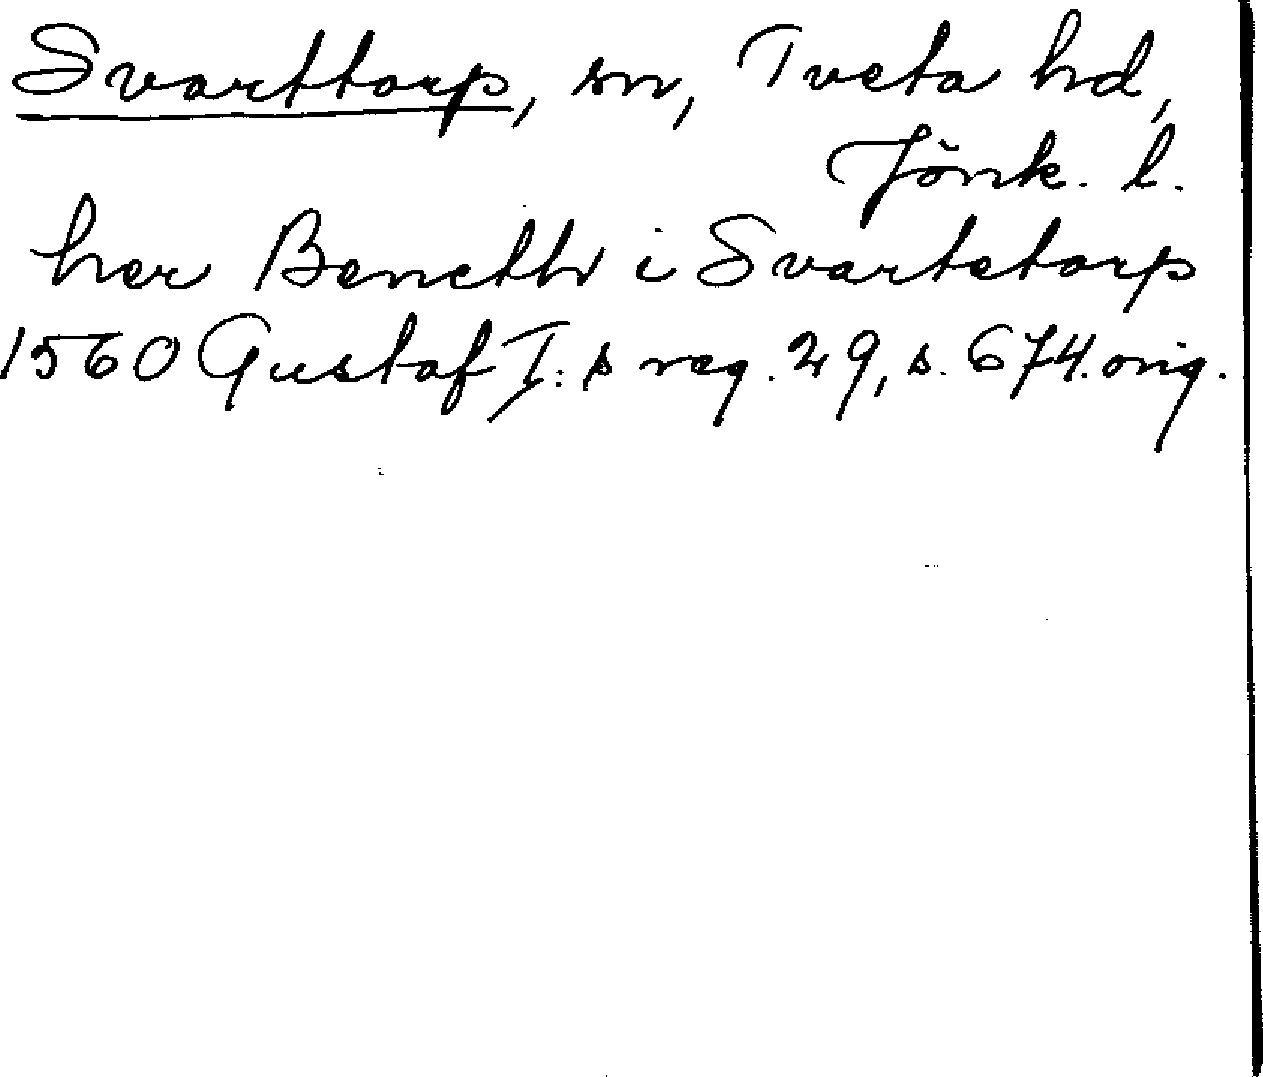 Svarttorp, sn, Tveta hd,
Jönk. l.
her Beneth i Svartetorp
1560 Gustaf I:s reg. 29, s. 674. orig.